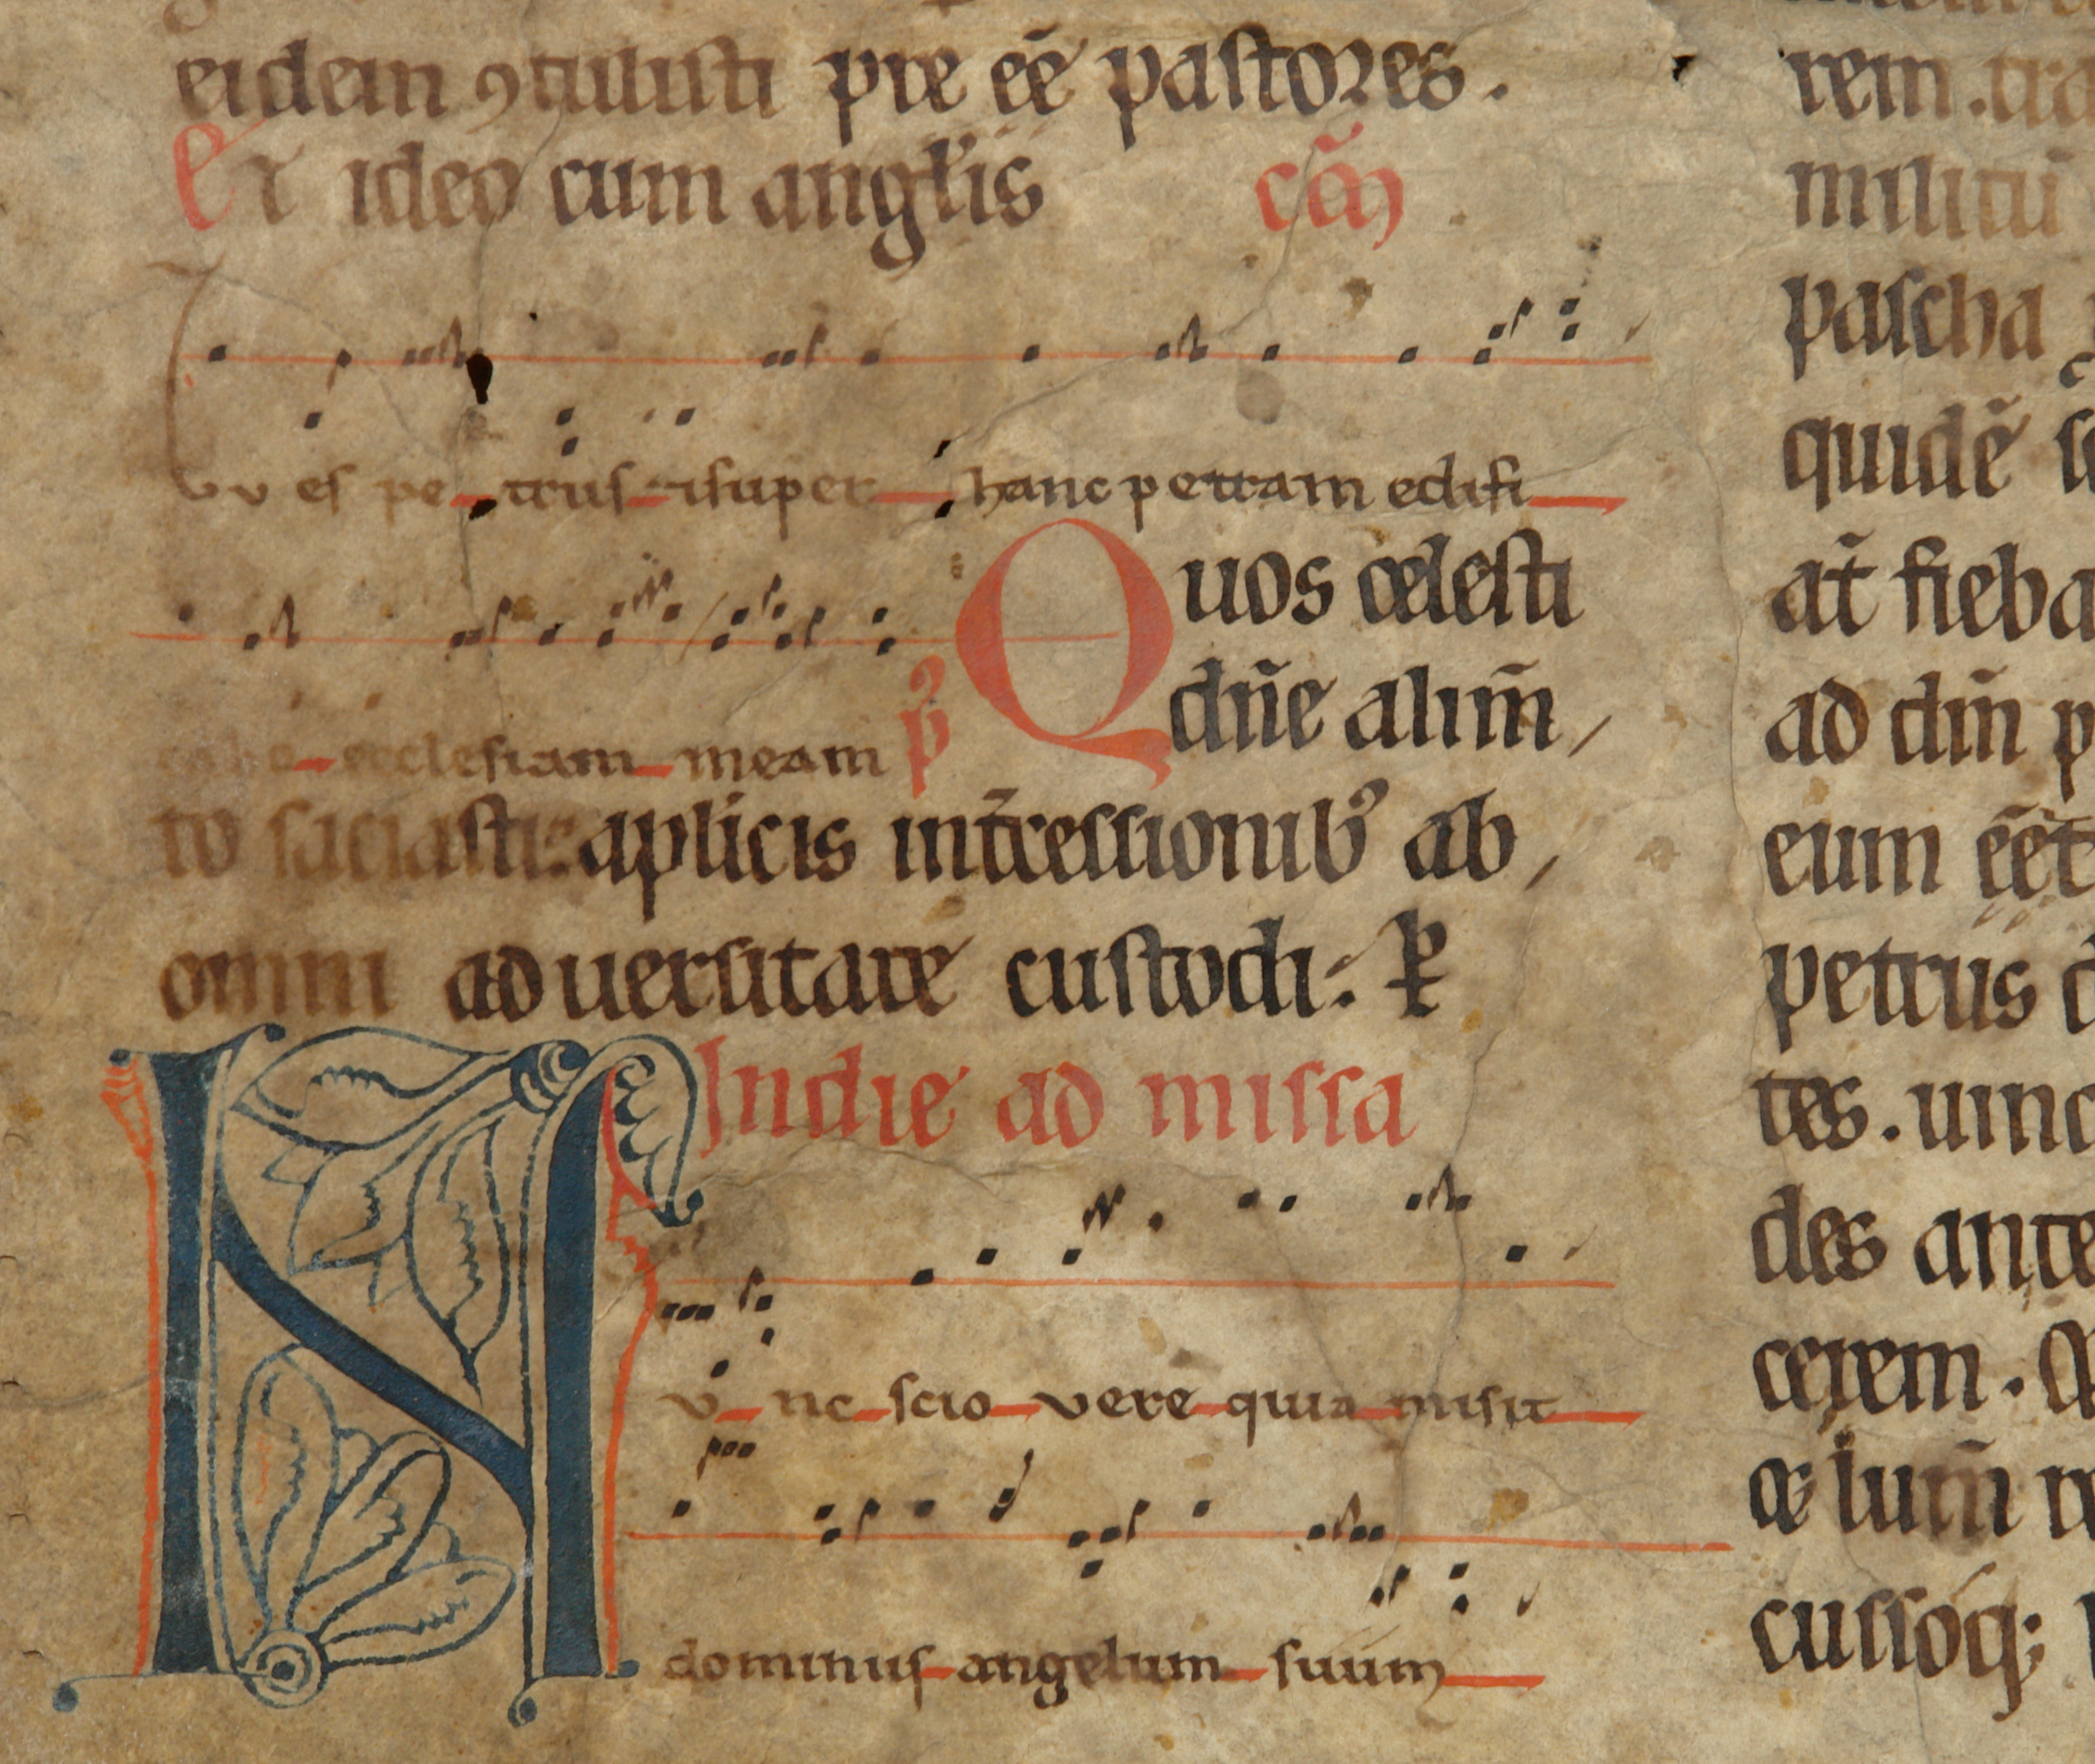 eidem ꝯtulisti pre eē pastores.
Et ideo cum angl̕is cōꝫ
Tv es pe trus ⁊ super hanc petram edifi
cabo ecclesiam meam p̄ Quos celesti
dn̄e alim̄
to saciasti: aplicis int̄cessionib᾽ ab
omni aduersitate custodi: P
Indie ad missa
Nvnc scio vere quia misit
dominus angelum suum
rem. tra
militū
pascha
quidē
at̄ fieba
ad dn̄m p
eum eēt
petrus
tes. uinc
des ante
cerem.
lum̄
cussoqꝫ